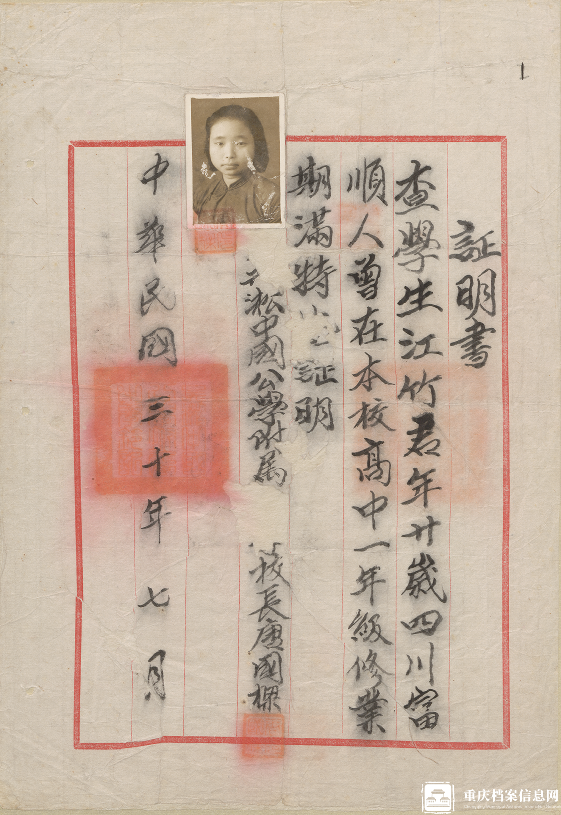 1
証明書
查學生江竹君年廿歲四川富
順人曾在本校高中一年級修業
期滿特 証明
淞中國公學附屬 校長唐國樑
中華民國三十年七月
重庆档案信息网